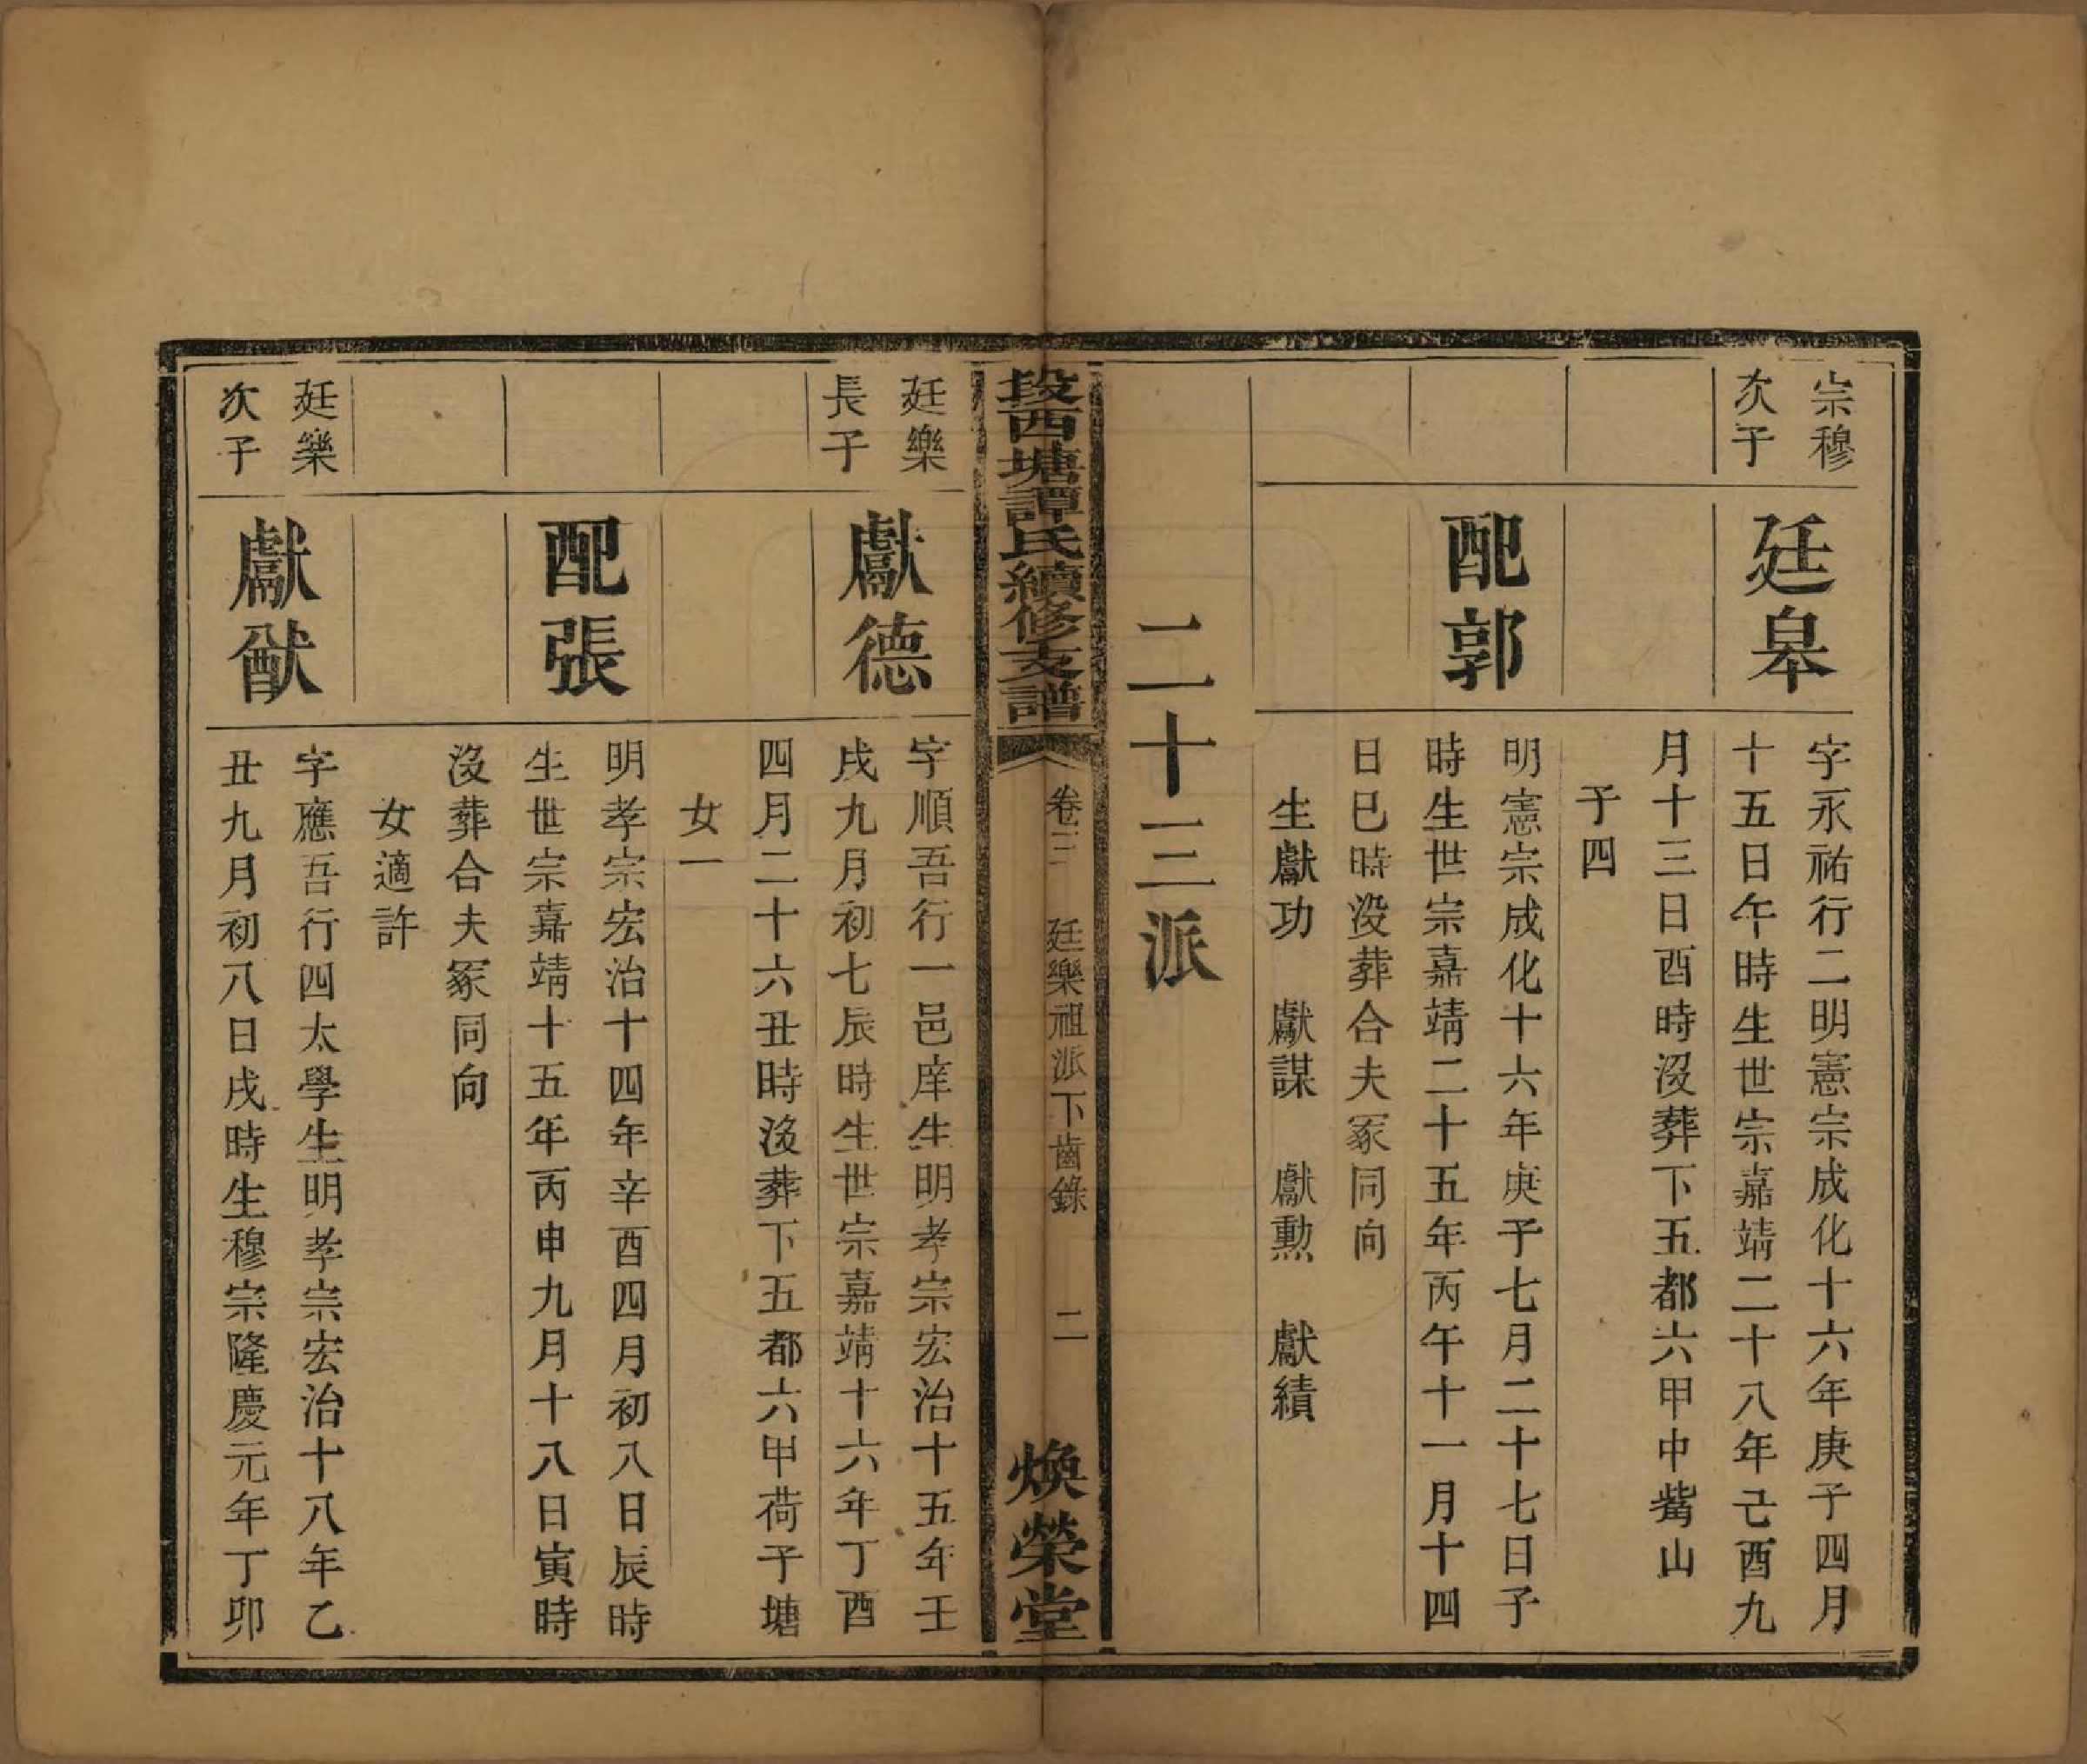 宗穆
次子
廷皋
字永祐行二明憲宗成化十六年庚子四月
十五日午時生世宗嘉靖二十八年己酉九
月十三日酉時沒葬下五都六甲中嘴山
子四
配郭
明憲宗成化十六年庚子七月二十七日子
時生世宗嘉靖二十五年丙午十一月十四
日巳時没葬合夫冢同向
生獻功 獻謀 獻勲 獻績
二十三派
段西塘譚氏續修支譜
卷三 廷樂祖派下齒錄 二
煥榮堂
廷樂
長子
獻德
字順吾行一邑庠生明孝宗宏治十五年壬
戌九月初七辰時生世宗嘉靖十六年丁酉
四月二十六丑時沒葬下五都六甲荷子塘
女一
配張
明孝宗宏治十四年辛酉四月初八日辰時
生世宗嘉靖十五年丙申九月十八日寅時
沒葬合夫冢同向
女適許
廷樂
次子
獻猷
字應吾行四太學生明孝宗宏治十八年乙
丑九月初八日戌時生穆宗隆慶元年丁卯